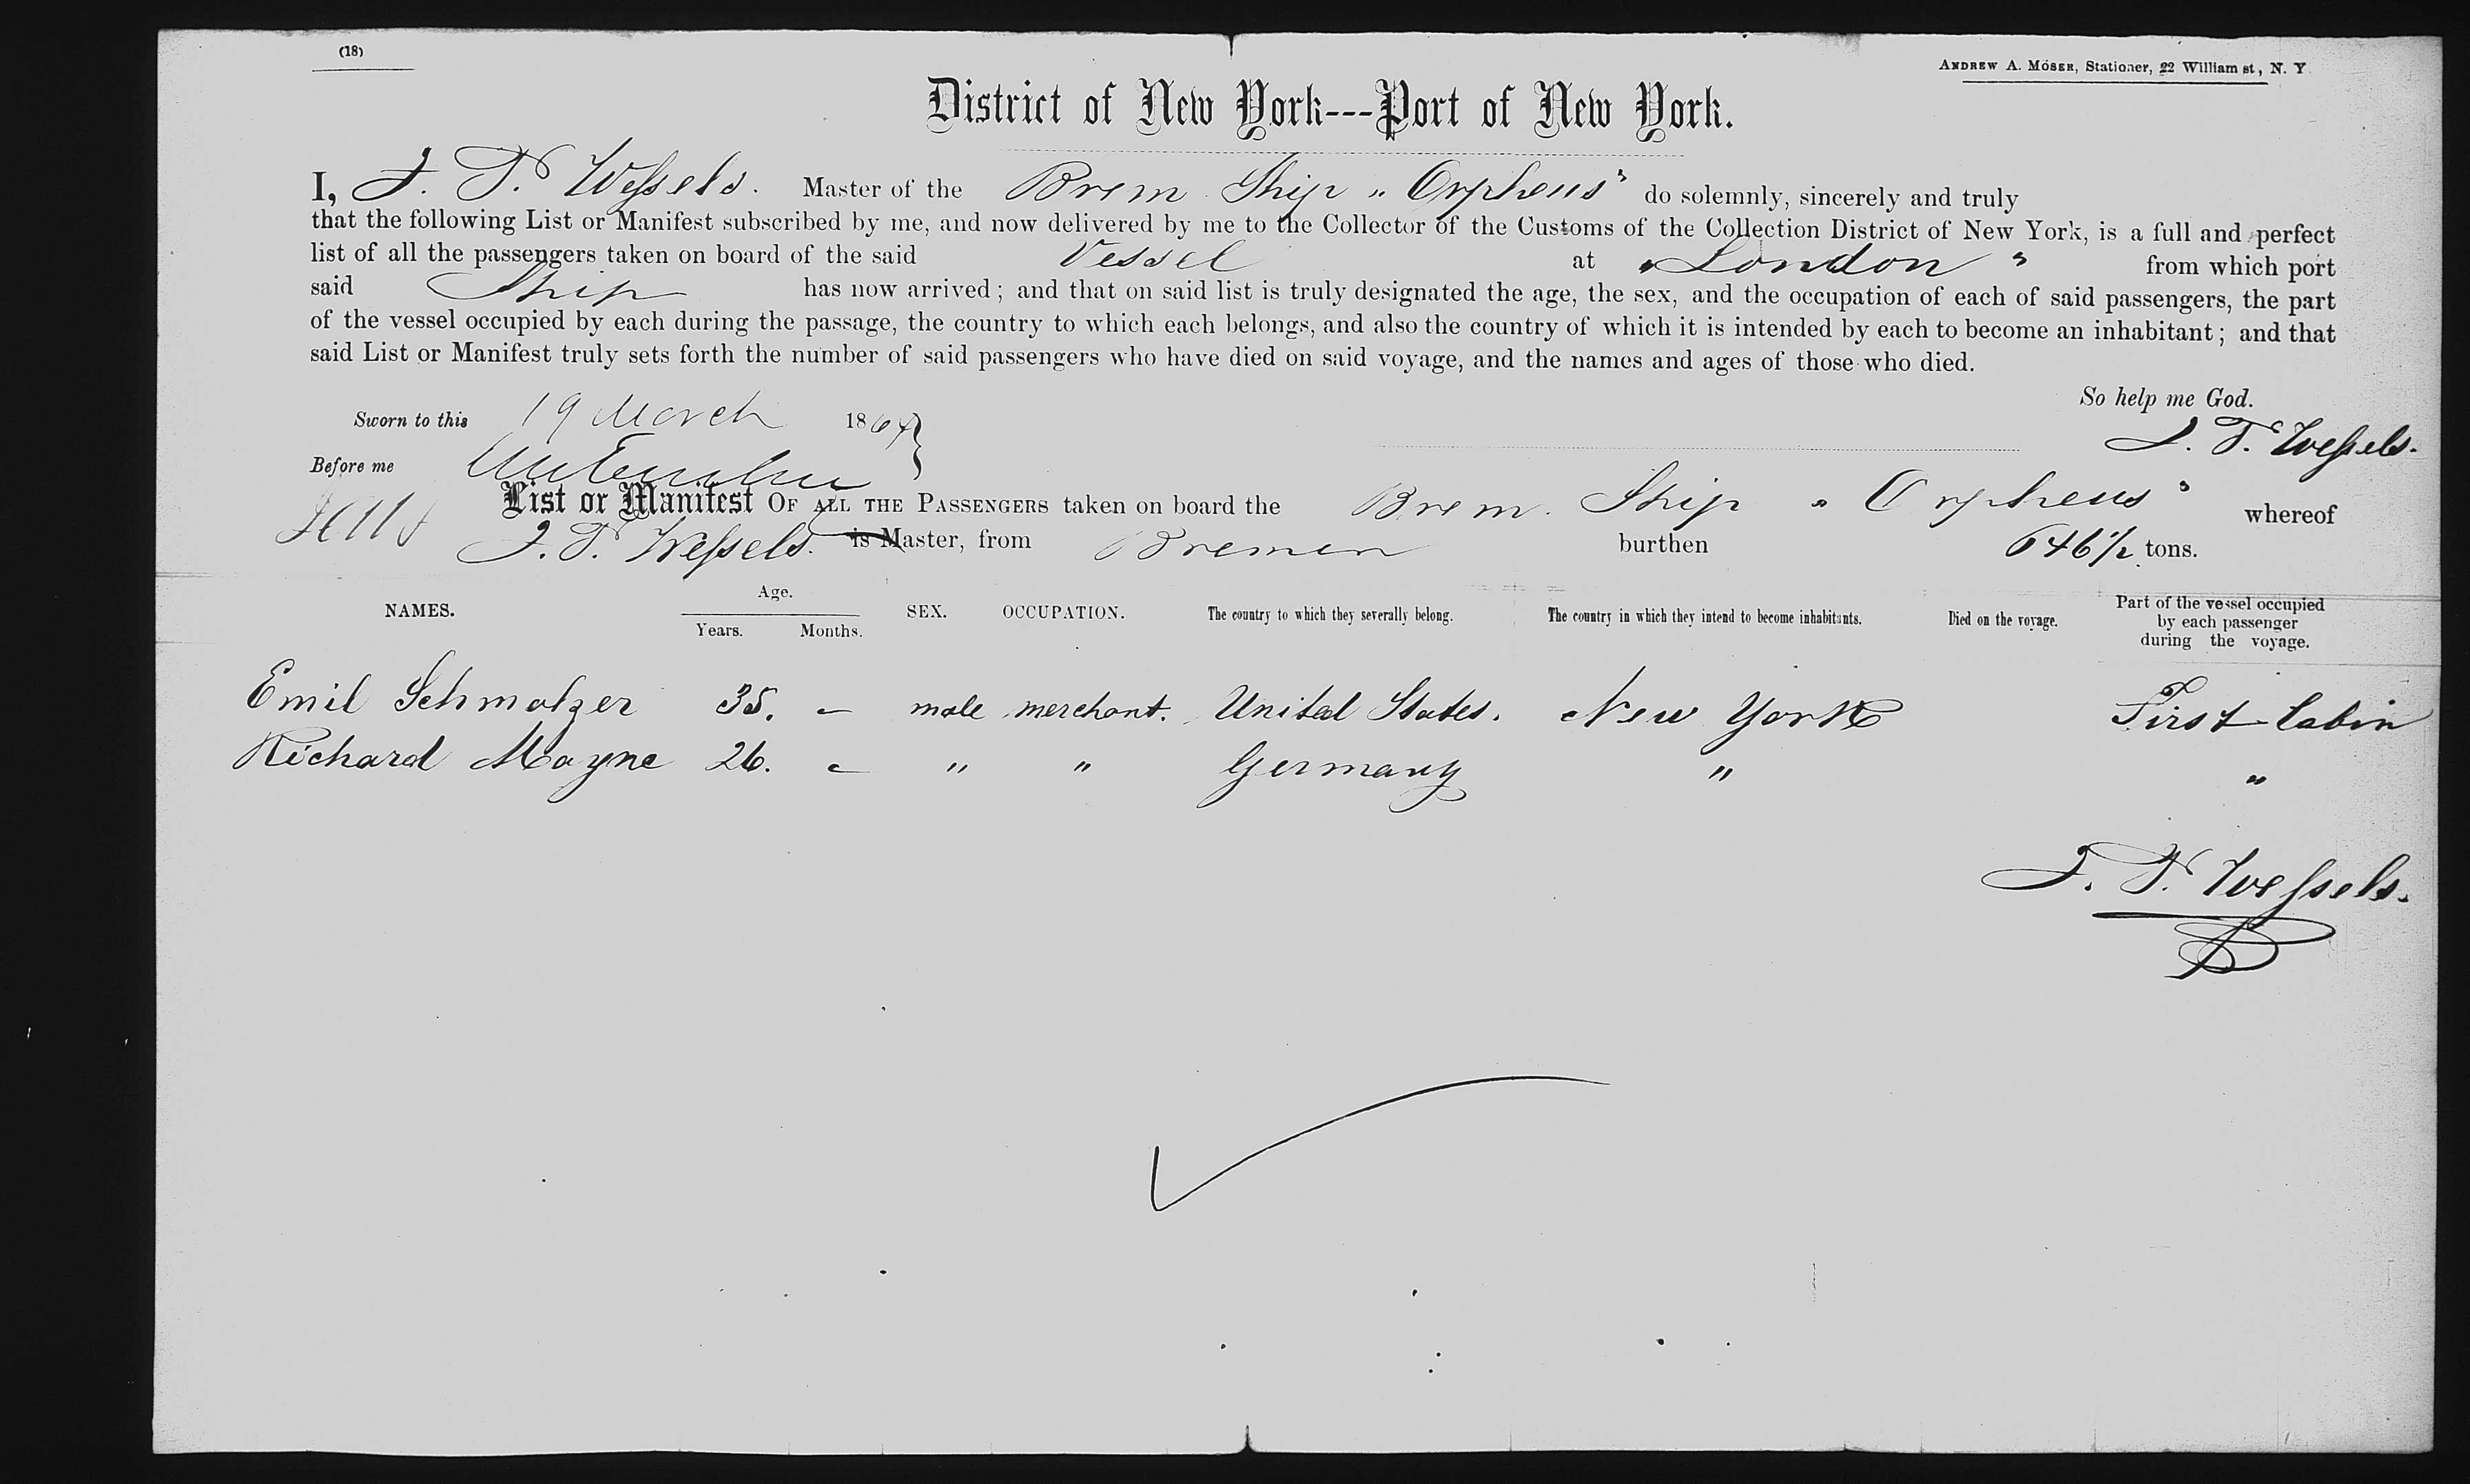 (18)
ANDREW A. MOSER, Stationer, 22 William st, N. Y.
District of New York---Port of New York.
I, J. T. Wessels. Master of the Brem Ship „ Orpheus" do solemnly, sincerely and truly
that the following List or Manifest subscribed by me, and now delivered by me to the Collector of the Customs of the Collection District of New York, is a full and perfect
list of all the passengers taken on board of the said Vessel at „London" from which port
said Ship has now arrived; and that on said list is truly designated the age, the sex, and the occupation of each of said passengers, the part
of the vessel occupied by each during the passage, the country to which each belongs, and also the country of which it is intended by each to become an inhabitant; and that
said List or Manifest truly sets forth the number of said passengers who have died on said voyage, and the names and ages of those who died.
So help me God.
Sworn to this 19 March 1864
J. T. Wessels.
Before me
List or Manifest OF ALL THE PASSENGERS taken on board the Brem. Ship „ Orpheus" whereof
J. T. Wessels. is Master, from Bremen burthen 646 1/2 tons.
NAMES. Age. SEX. OCCUPATION. The country to which they severally belong. The country in which they intend to become inhabitants. Died on the voyage. Part of the vessel occupied by each passenger during the voyage.
Years. Months.
Emil Schmolzer 35. – male merchant. United States. New York First Cabin
Richard Mayne 26. – " " Germany " "
J. T. Wessels.